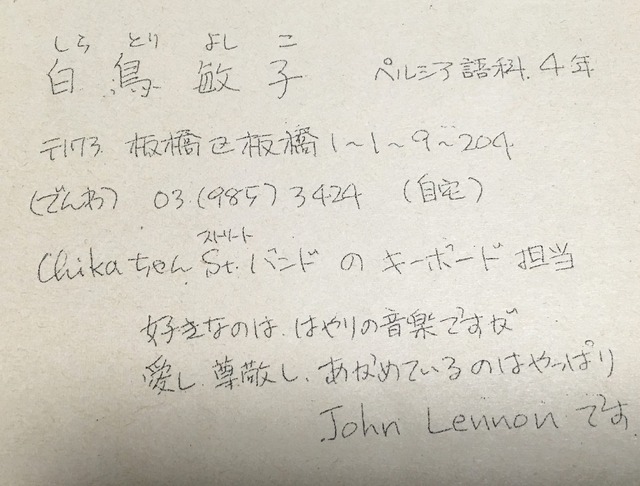 しら とり よし こ
白鳥 敏子 ペルシア語科.4年
〒173 板橋区板橋1~1~9~204
(でんわ) 03.(985)3424 (自宅)
ストリート
Chikaちゃん St.バンドのキーボード担当
好きなのは.はやりの音楽ですが
愛し.尊敬し、あがめているのはやっぱり
John Lennonです